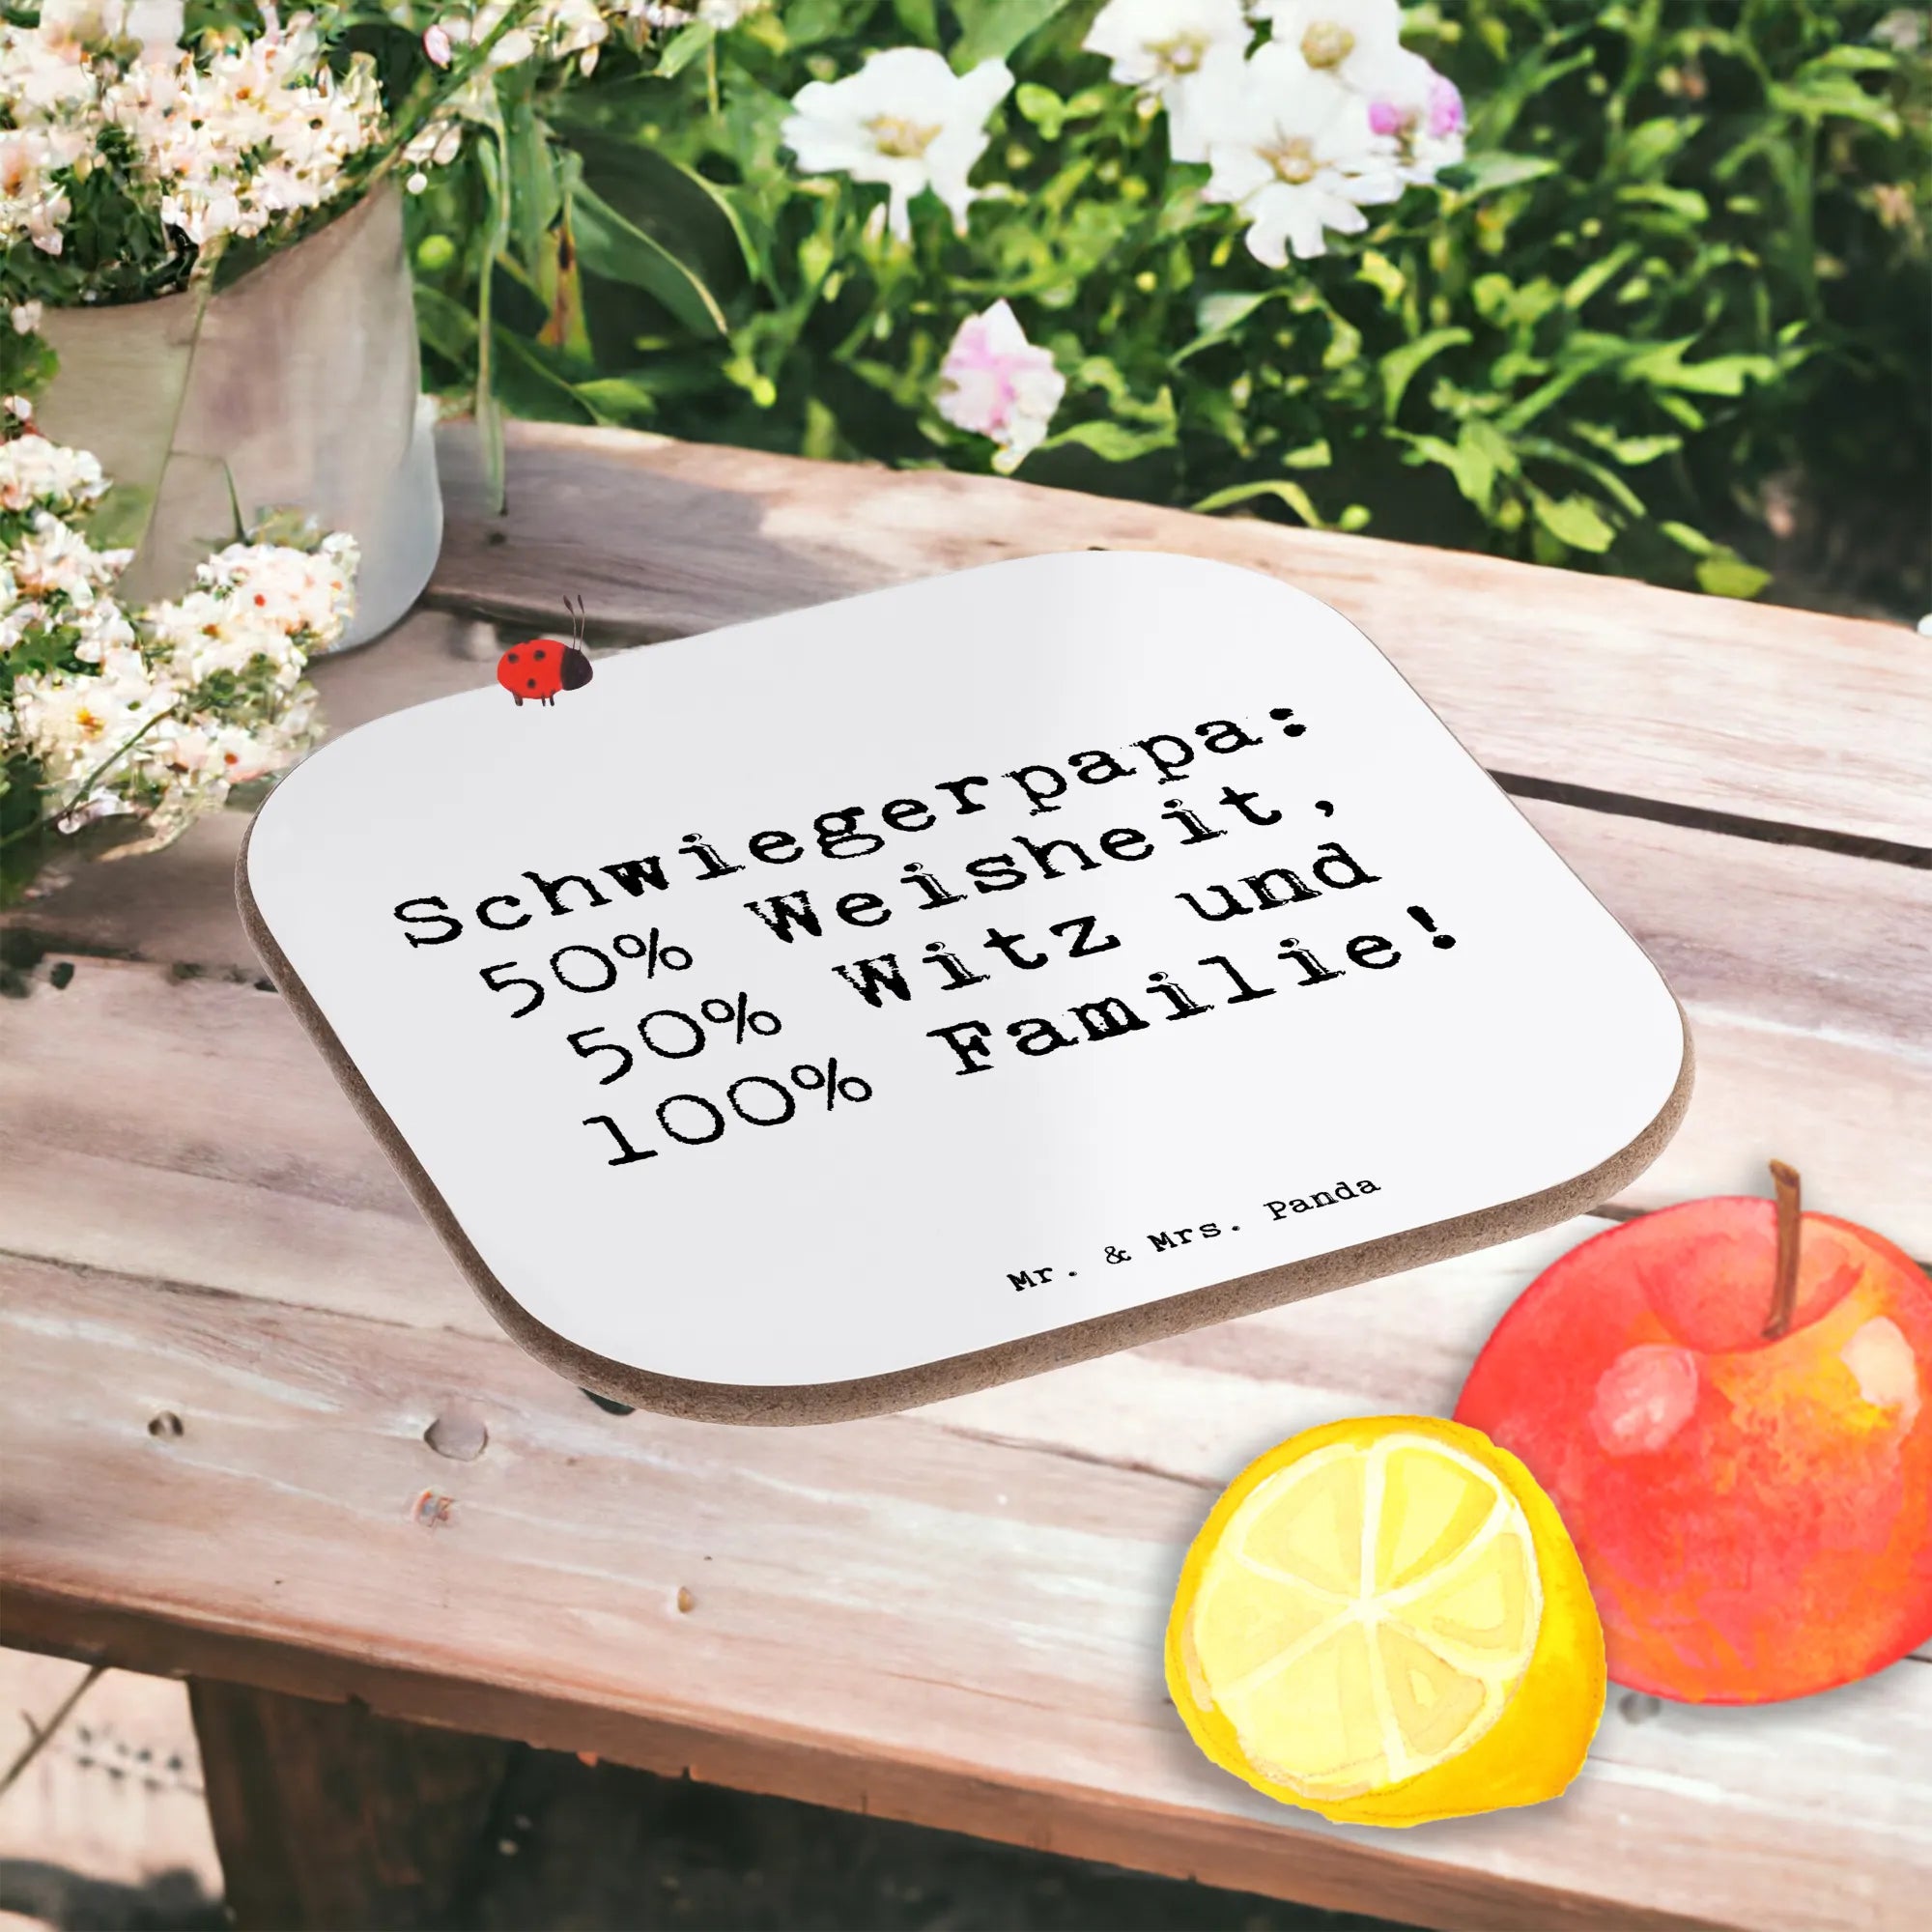 Schwiegerpapa:
50% Weisheit,
50% Witz und
100% Familie!
Mr. & Mrs. Panda